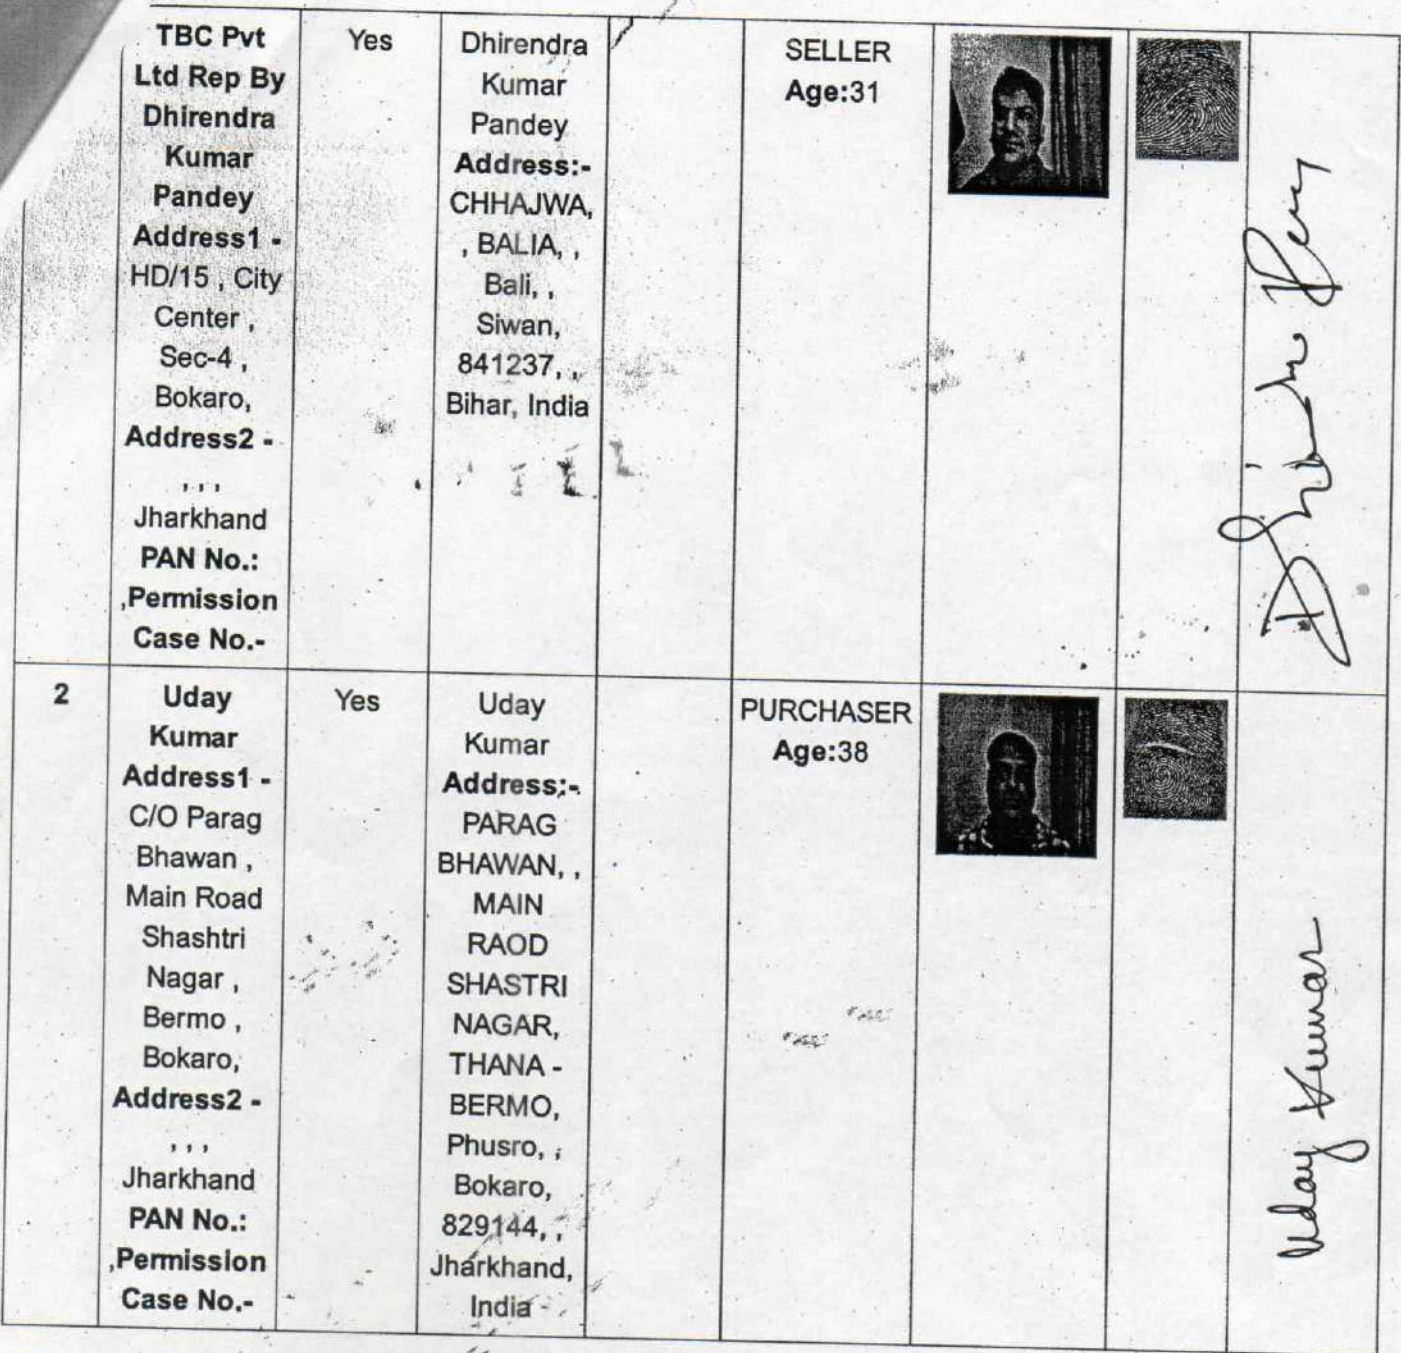 TBC Pvt
Ltd Rep By
Dhirendra
Kumar
Pandey
Address1 -
HD/15 , City
Center ,
Sec-4 ,
Bokaro,
Address2 -
, , ,
Jharkhand
PAN No.:
,Permission
Case No.-
Yes
Dhirendra
Kumar
Pandey
Address:-
CHHAJWA,
, BALIA, ,
Bali, ,
Siwan,
841237, ,
Bihar, India
SELLER
Age:31
2
Uday
Kumar
Address1 -
C/O Parag
Bhawan ,
Main Road
Shashtri
Nagar ,
Bermo ,
Bokaro,
Address2 -
, , ,
Jharkhand
PAN No.:
,Permission
Case No.-
Yes
Uday
Kumar
Address:-
PARAG
BHAWAN, ,
MAIN
RAOD
SHASTRI
NAGAR,
THANA -
BERMO,
Phusro, ,
Bokaro,
829144, ,
Jharkhand,
India
PURCHASER
Age:38
Uday Kumar